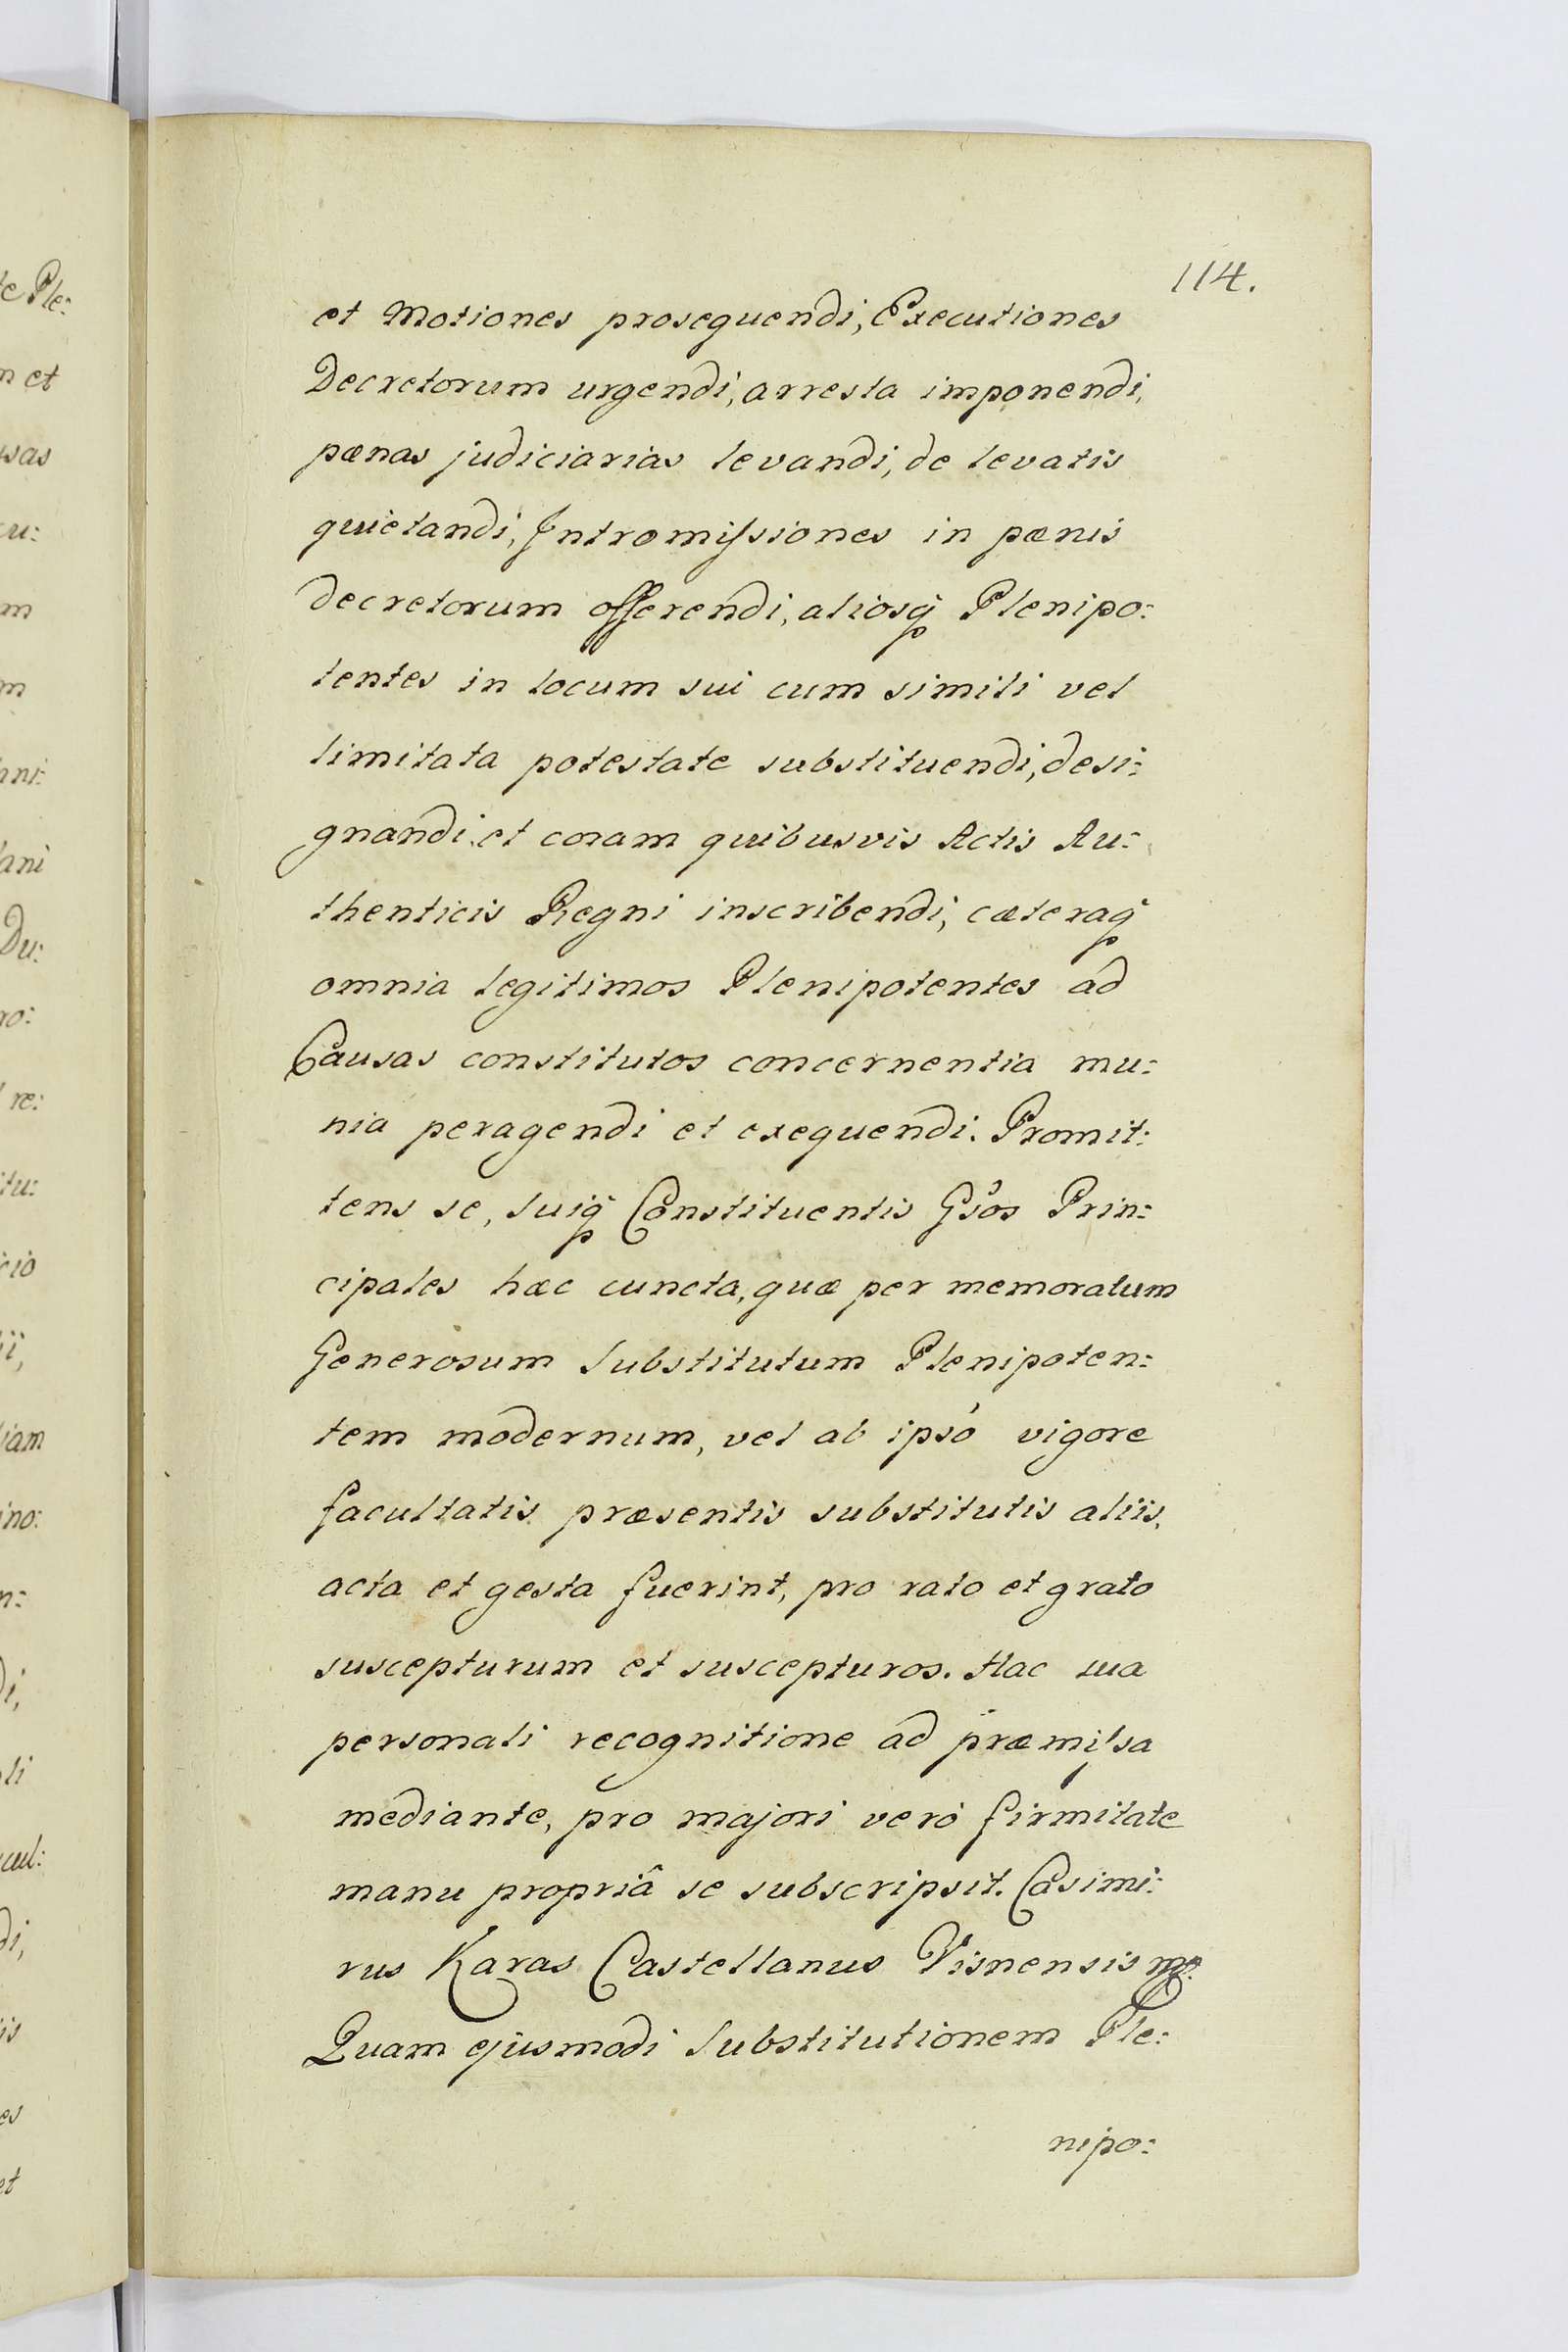 114.
et Motiones prosequendi, Executiones
Decretorum urgendi, arresta imponendi,
pænas judiciarias levandi, de levatis
quietandi, Intromissiones in pænis
decretorum offerendi, aliosq̃ Plenipo:
tentes in locum sui cum simili vel
limitata potestate substituendi, desi:
gnandi et coram quibusvis Actis Au:
thenticis Regni inscribendi, cæteraq̃
omnia legitimos Plenipotentes ad
Causas constitutos concernentia mu:
nia peragendi et exequendi. Promit:
tens se, suiq̃ Constituentis Gsos Prin:
cipales hæc cuncta, quæ per memoratum
Generosum Substitutum Plenipoten:
tem modernum, vel ab ipsó vigore
facultatis præsentis substitutis aliis,
acta et gesta fuerint, pro rato et grato
suscepturum et suscepturos. Hac sua
personali recognitione ad præmissa
mediante, pro majori veró firmitate
manu propriâ se subscripsit. Casimi:
rus Karas Castellanus Visnensis mp.
Quam ejusmodi Substitutionem Ple:
nipo:
te Ple:
n et
usas
cu:
m
m
ani:
lani
Du:
ro:
re:
itu:
cio
ii,
iam
ino:
n:
di,
li
cul:
di,
is
es
et